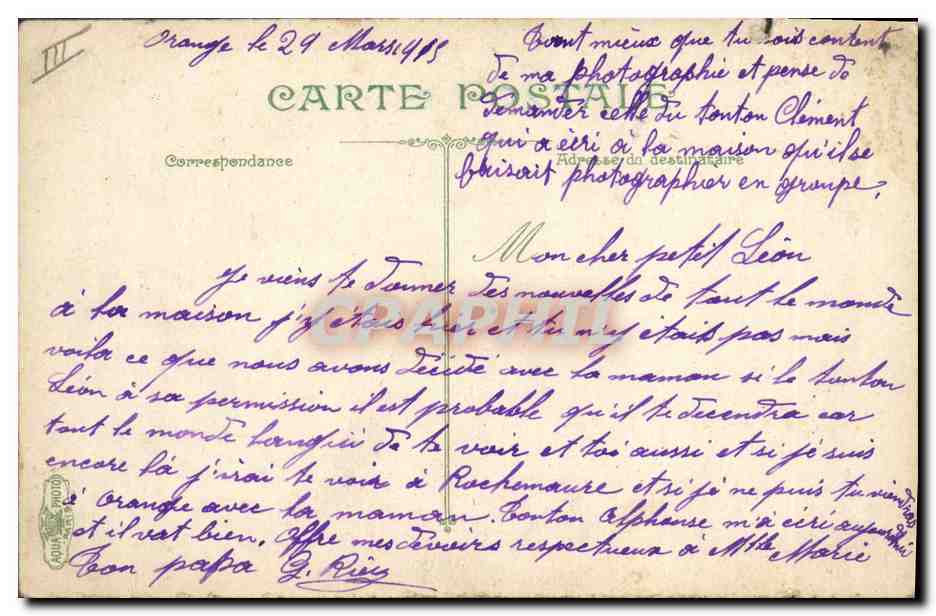 III
Orange le 29 Mars 1915
CARTE POSTALE
Correspondance
Adresse du destinataire
Mon cher petit Léon
Je viens te donner des nouvelles de tout le monde
à la maison j'y étais hier et toi n'y étais pas mais
voila ce que nous avons décidé avec la maman si le tonton
Léon à sa permission il est probable qu'il te decendra car
tout le monde langui de te voir et toi aussi et si je suis
encore là j'irai te voir à Rochemaure et si je ne puis tu viendras
à Orange avec la maman. Tonton Alphonse m'a écri aujourd'hui
et il vat bien. Offre mes devoirs respectueux à Mlle Marie
Ton papa G.
Tant mieux que tu sois content
de ma photographie et pense de
demander celle du tonton Clément
qui a écri à la maison qu'il se
faisait photographier en groupe.
AQUA PHOTO
PARIS
CPAPHIL